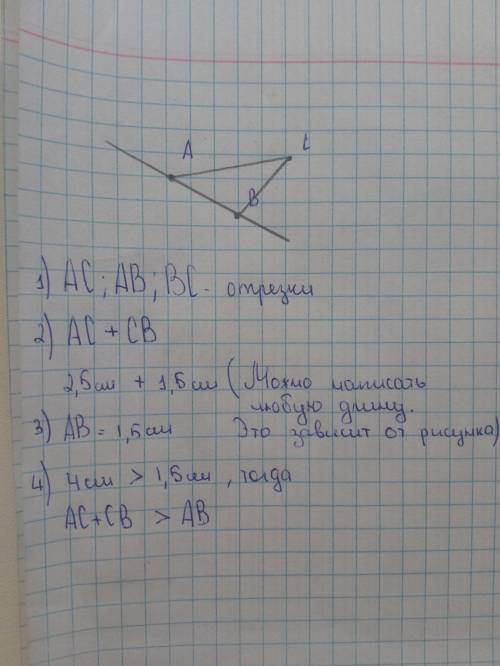 A
C
B
1) AC; AB; BC - отрезки
2) AC + CB
2,5 см + 1,5 см (Можно написать
любую длину.
3) AB = 1,5 см Это зависит от рисунка)
4) 4 см > 1,5 см, тогда
AC+CB > AB